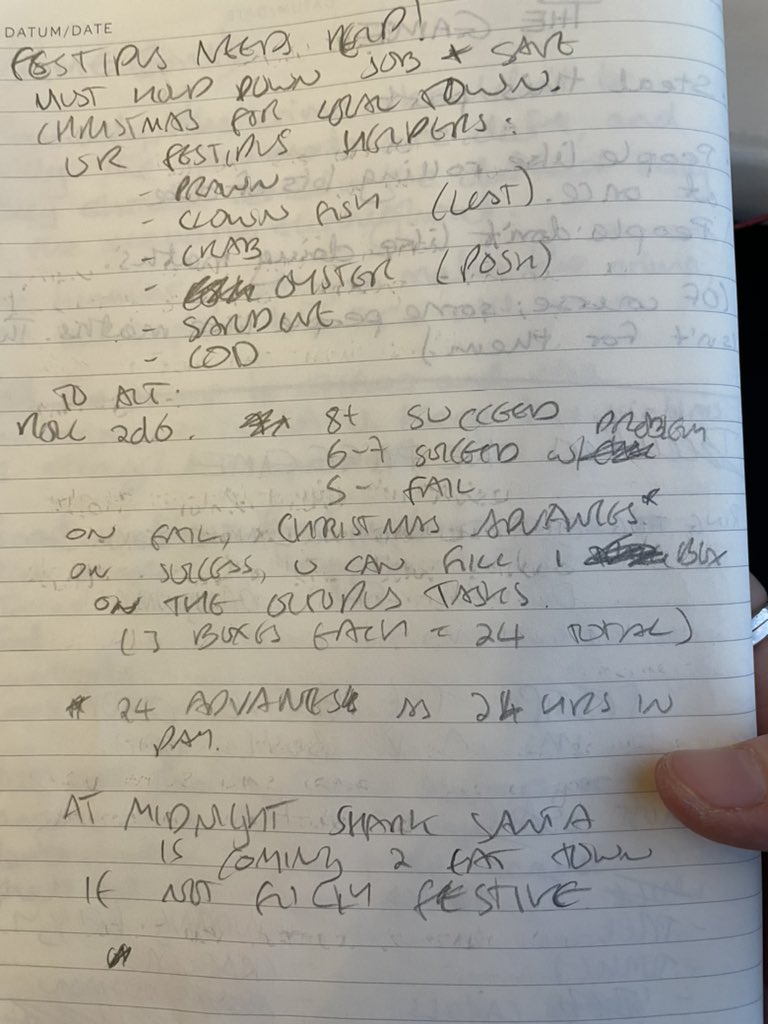 DATUM/DATE
FESTIPUS NEEDS HELP!
MUST HOLD DOWN JOB + SAVE
CHRISTMAS FOR LOCAL TOWN.
UR FESTIPUS HELPERS:
- PRAWN
- CLOWN FISH (LOST)
- CRAB
- OYSTER (POSH)
- SARDINE
- COD
TO ACT:
ROLL 2d6. 8+ SUCCEED
6-7 SUCCEED w/ PROBLEM
5- FAIL
ON FAIL, CHRISTMAS ADVANCES*
ON SUCCESS, U CAN FILL 1 BOX
ON THE OCTOPUS TASKS.
(3 BOXES EACH = 24 TOTAL)
* 24 ADVANCES AS 24 HRS IN
DAY.
AT MIDNIGHT SHARK SANTA
IS COMING 2 EAT TOWN
IF NOT FULLY FESTIVE